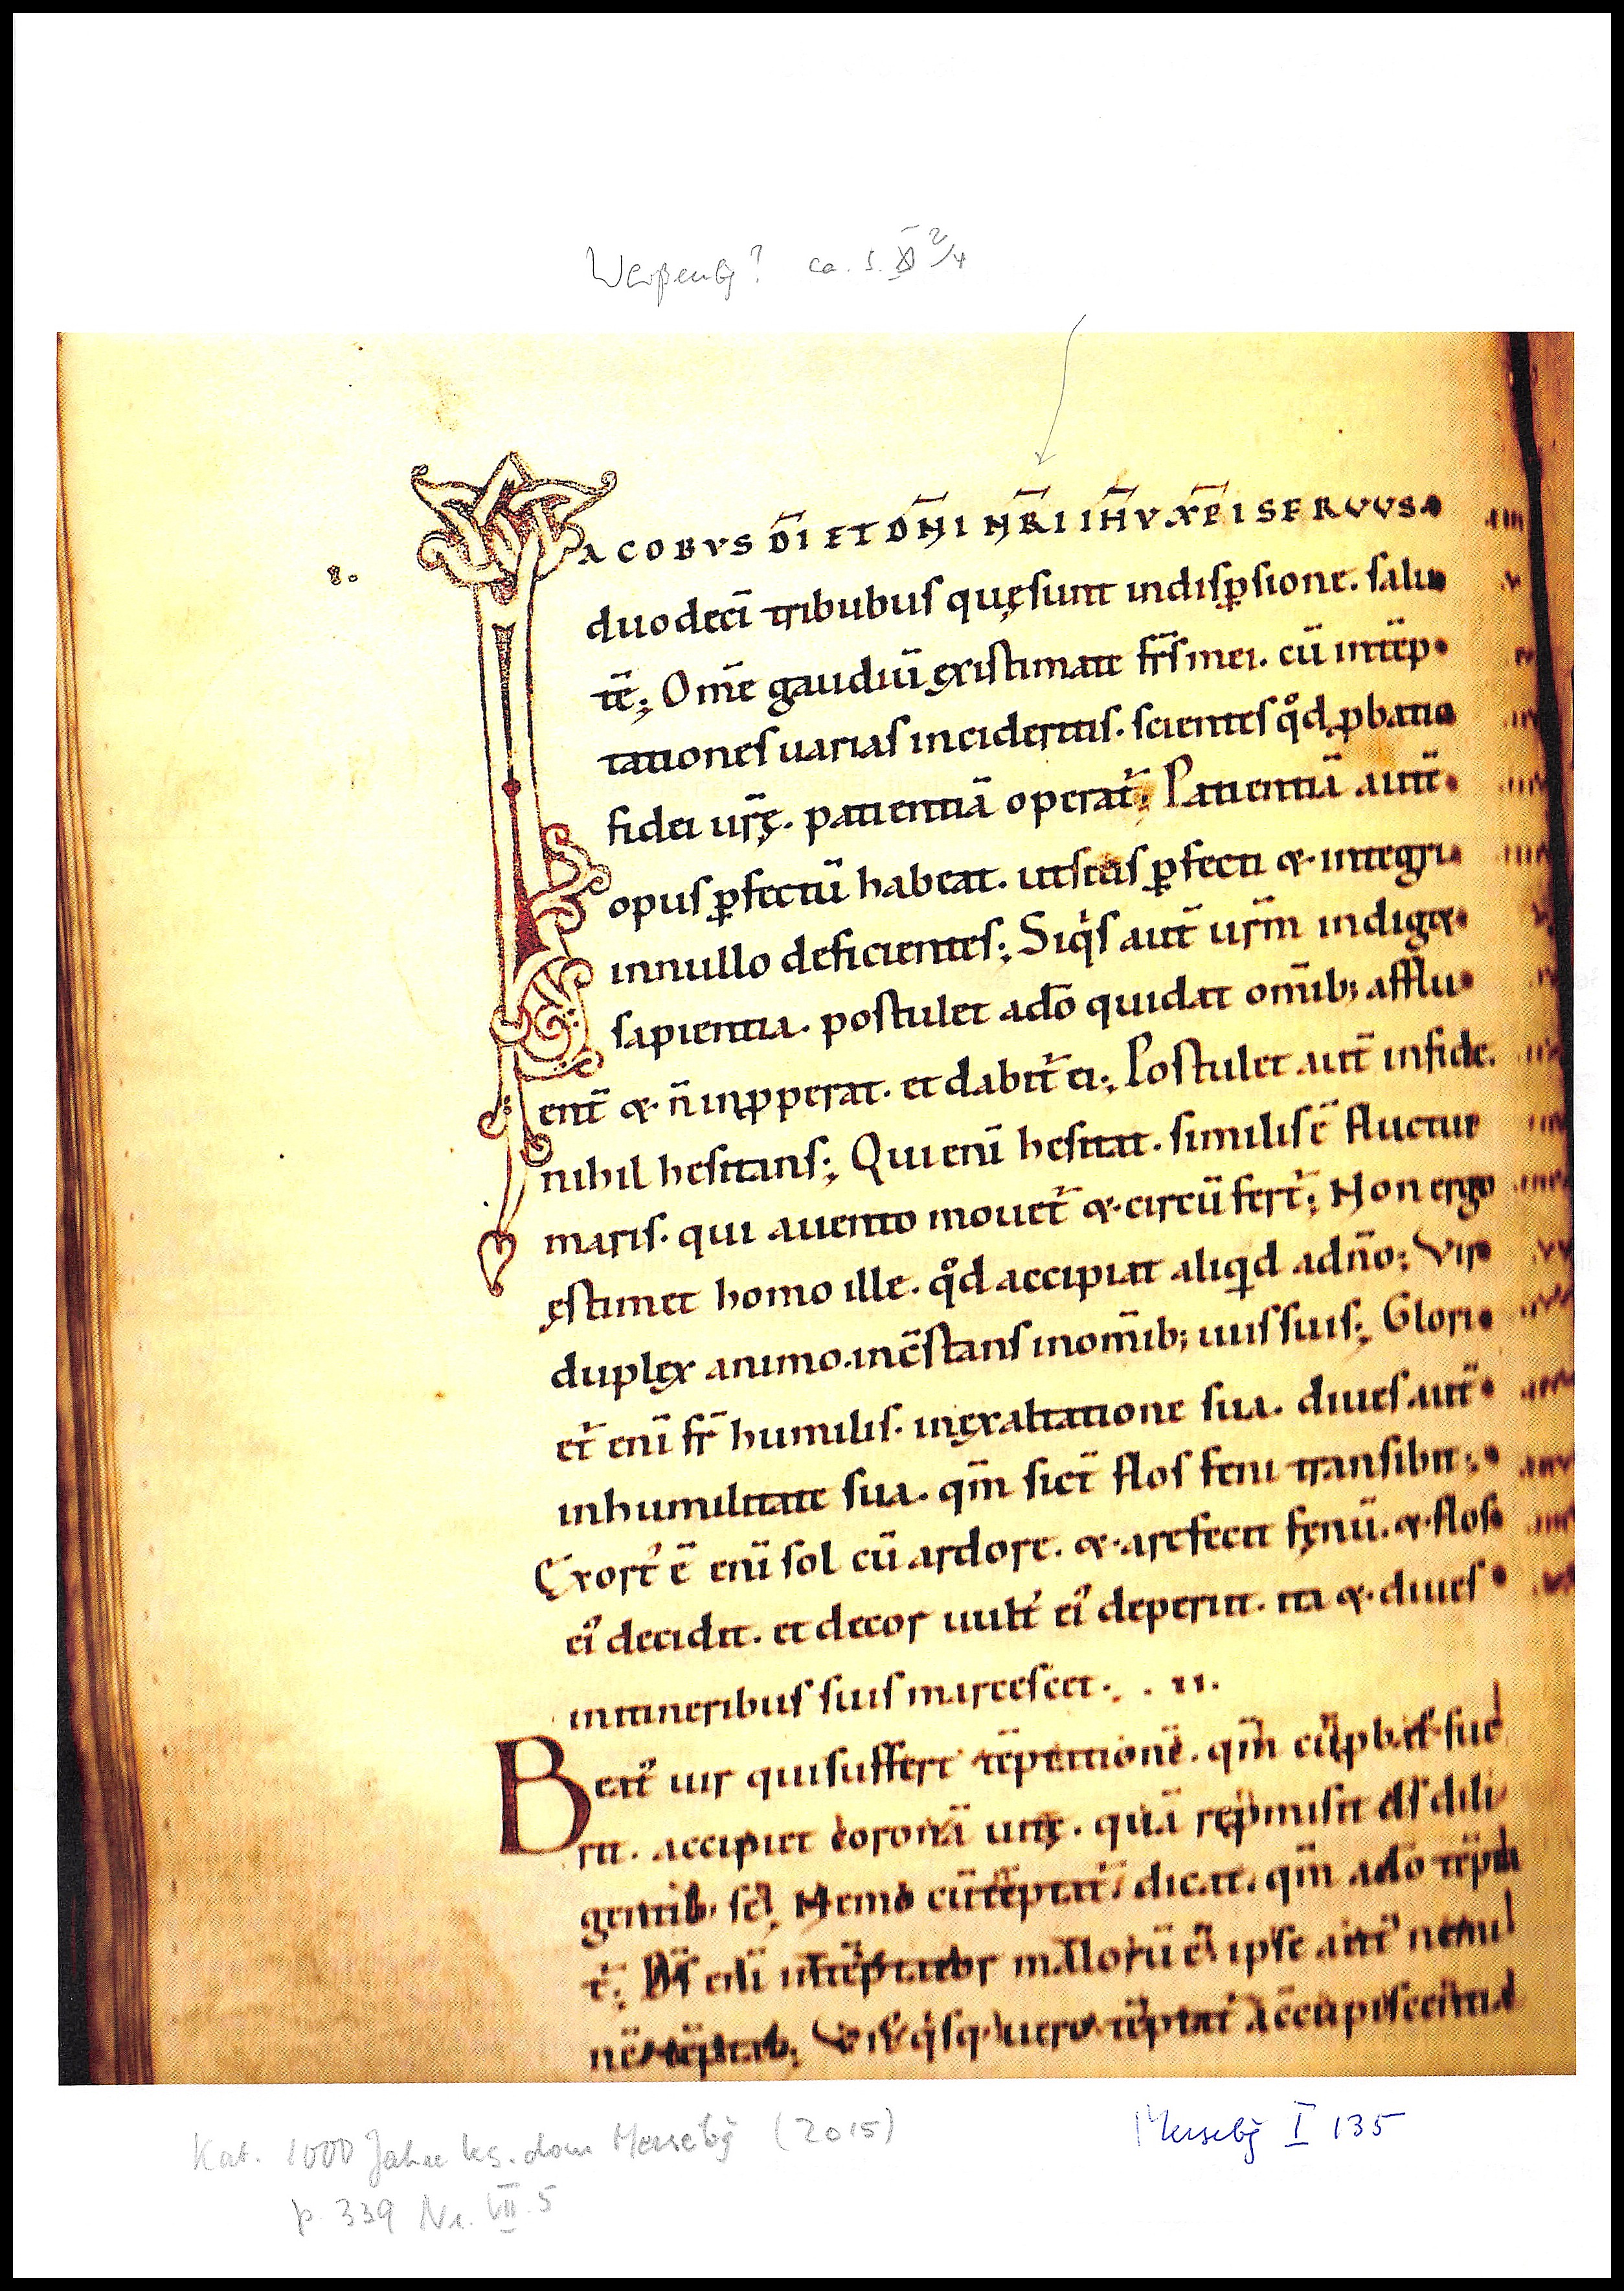 Weißenbg? ca. s. XI 2/4
.I.
IACOBVS D̄I ET DN̄I N̄RI IH̄V XP̄I SERVVS
duodecī tribubus quęsunt indisꝑsione. salu
tē; Om̄e gaudiū exıstimate frs̄ mei. cū intēp
tationes uarias incideritis. scientes qd̊ ꝓbatio
fidei ur̄ę. patientiā operat᷑; Patientiā autē
opus ꝑfectū habeat. utsitis ꝑfecti & integri
innullo deficientes; Siqͥs aut̄ ur̄m indiget
sapientia. postulet ado̅ quidat om̅ib; afflu
ent̄ & n̄ inꝓperat. et dabit᷑ ei; Postulet aut̄ infide.
nihil hesitans; Qui enī hesitat. similis ē fluctui
maris. qui auento mouet᷑ & circūfert᷑; Non ergo
ęstimet homo ille. qd̊ accipiat aliqͥd adn̄o; Vir
duplex animo. incōstans inom̄ib; uiis suis; Glori
et᷑ enī fr̄ humilis. inexaltatione sua. diues aut̄
inhumilitate sua. qm̄ sict̄ flos feni transibit;
Exort᷒ ē enī sol cū ardore. & arefecit fęnū. & flos
ei᷒ decidit. et decor uult᷒ ei᷒ deperiit. ita & diues
initineribus suis marcescet; . II.
Beat᷒ uir quisuffert tēptationē. qm̄ cū ꝓbat᷒ fue
rit. accipiet coronā uitę. quā repͬmisit ds̄ dili
gentib; se; Nemo cū tēptat᷑ dicat. qm̄ ado̅ tēpta
t᷑; Ds̄ enī intēptator malorū ē. ipse aut̄ nemi
nē tēptat; Vn᷒qͥsq; uero tēptat᷑ aconcupiscentia
Kat. 1000 Jahre Ks. dom Mersebg (2015)
p. 339 Nr. VII.5
Mersebg I 135